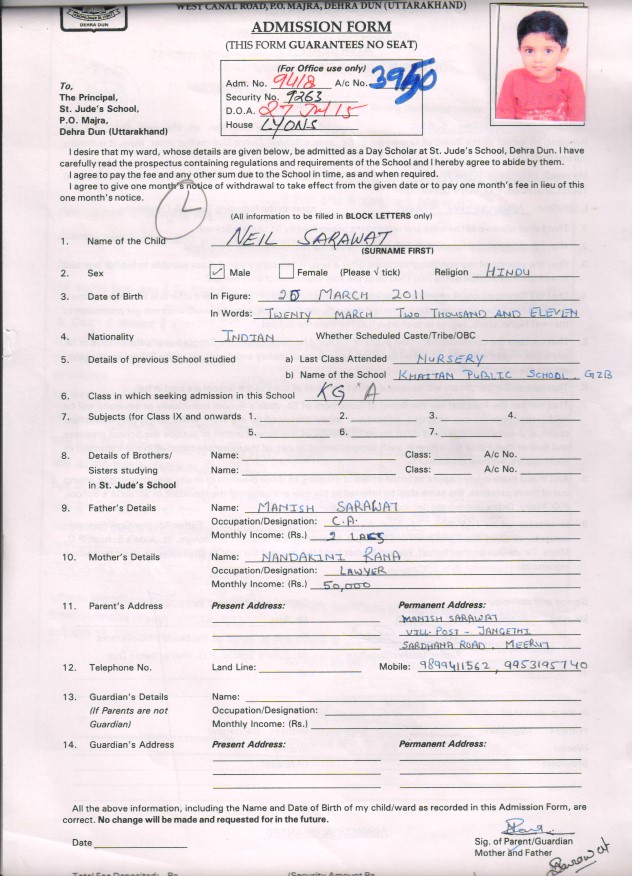 DEHRA DUN
WEST CANAL ROAD, P.O. MAJRA, DEHRA DUN (UTTARAKHAND)
ADMISSION FORM
(THIS FORM GUARANTEES NO SEAT)
(For Office use only)
Adm. No. 9418 A/c No. 3950
Security No. 9263
D.O.A. 27 Jul 15
House LYONS
To,
The Principal,
St. Jude's School,
P.O. Majra,
Dehra Dun (Uttarakhand)
I desire that my ward, whose details are given below, be admitted as a Day Scholar at St. Jude's School, Dehra Dun. I have
carefully read the prospectus containing regulations and requirements of the School and I hereby agree to abide by them.
I agree to pay the fee and any other sum due to the School in time, as and when required.
I agree to give one month's notice of withdrawal to take effect from the given date or to pay one month's fee in lieu of this
one month's notice.
L
(All information to be filled in BLOCK LETTERS only)
1. Name of the Child NEIL SARAWAT
(SURNAME FIRST)
2. Sex ✓ Male Female (Please √ tick) Religion HINDU
3. Date of Birth In Figure: 20 MARCH 2011
In Words: TWENTY MARCH TWO THOUSAND AND ELEVEN
4. Nationality INDIAN Whether Scheduled Caste/Tribe/OBC
5. Details of previous School studied a) Last Class Attended NURSERY
b) Name of the School KHAITAN PUBLIC SCHOOL, GZB
6. Class in which seeking admission in this School KG 'A
7. Subjects (for Class IX and onwards 1. 2. 3. 4.
5. 6. 7.
8. Details of Brothers/ Name: Class: A/c No.
Sisters studying Name: Class: A/c No.
in St. Jude's School
9. Father's Details Name: MANISH SARAWAT
Occupation/Designation: C.A.
Monthly Income (Rs.) 2 LACS
10. Mother's Details Name: NANDAKINI RANA
Occupation/Designation: LAWYER
Monthly Income: (Rs.) 50,000
11. Parent's Address Present Address: Permanent Address:
MANISH SARAWAT
VILL. POST - JANGETHI
SARDHANA ROAD, MEERUT
12. Telephone No. Land Line: Mobile: 9899411562, 9953195740
13. Guardian's Details Name:
(If Parents are not Occupation/Designation:
Guardian) Monthly Income: (Rs.)
14. Guardian's Address Present Address: Permanent Address:
All the above information, including the Name and Date of Birth of my child/ward as recorded in this Admission Form, are
correct. No change will be made and requested for in the future.
Date
Sig. of Parent/Guardian
Mother and Father
Sarawat